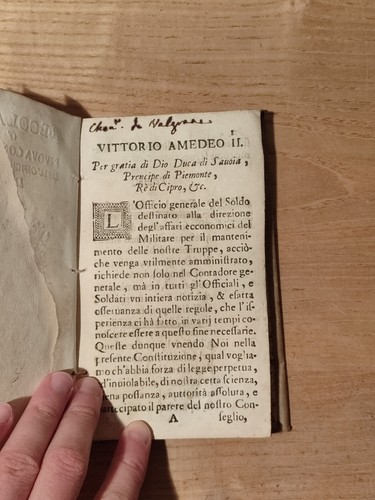 Chev.r de Valgrane
VITTORIO AMEDEO II.
Per gratia di Dio Duca di Sauoia,
Prencipe di Piemonte,
Rè di Cipro, &c.
L'Officio generale del Soldo
destinato alla direzione
degl'affari ecconomici del
Militare per il manteni-
mento delle nostre Truppe, acciò-
che venga vtilmente amministrato,
richiede non solo nel Contadore ge-
nerale, mà in tutti gl'Officiali, e
Soldati vn intiera notizia, & esatta
osseruanza di quelle regole, che l'is-
perienza ci hà fatto in varij tempi co-
noscere essere a questo fine necessarie.
Queste dunque vnendo Noi nella
presente Constituzione, qual voglia-
mo ch'abbia forza di legge perpetua,
d'inuiolabile, di nostra certa scienza,
piena possanza, autorità assoluta, e
partecipato il parere del nostro Con-
A seglio,